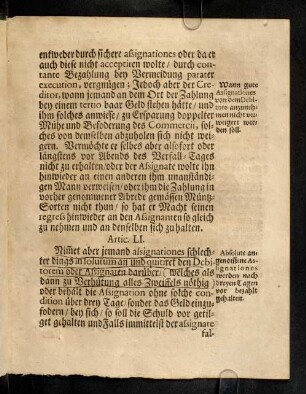 entweder durch sichere assignationes oder da er
auch diese nicht acceptiren wolte / durch con-
tante Bezahlung bey Vermeidung parater
execution, vergnügen; Jedoch aber der Cre-
ditor, wann jemand an dem Ort der Zahlung
bey einem tertio baar Geld stehen hätte / und
ihm solches anwiese / zu Ersparung doppelter
Mühe und Beförderung des Commercii, sol-
ches von demselben abzuholen sich nicht wei-
gern. Vermöchte er selbes aber alsofort oder
längstens vor Abends des Verfall-Tages
nicht zu erhalten / oder der Assignate wolte ihn
hinwieder an einen anderen ihm unanständi-
gen Mann verweisen / oder ihm die Zahlung in
vorher genommener Abrede gemässen Müntz-
Sorten nicht thun / so hat er Macht seinen
regress hinwieder an den Assignanten so gleich
zu nehmen und an denselben sich zu halten.
Artic. LI.
Nimt aber jemand assignationes schlech-
ter dings in solutum an und quitiret den Debi-
torem oder Assignaten darüber (welches als
dann zu Verhütung alles Zweiffels nöthig)
oder behält die Assignation ohne solche con-
dition über drey Tage / sonder das Geld einzu-
fodern / bey sich / so soll die Schuld vor getil-
get gehalten und Falls immittelst der assignate
fal-
Wann gute
Assignationes
von dem Debi-
tore anzuneh-
men nicht ver-
weigert wer-
den soll.
Absolute an-
genommene As-
signationes
werden nach
dreyen Tagen
vor bezahlt
gehalten.